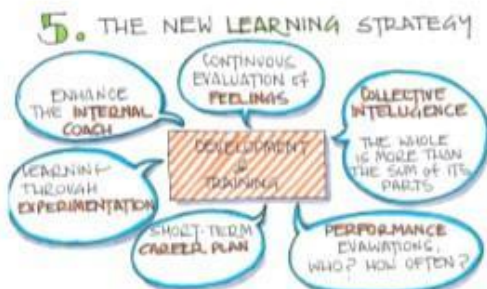 5. THE NEW LEARNING STRATEGY
CONTINUOUS
EVALUATION of
FEELINGS
ENHANCE
THE INTERNAL
COACH
COLLECTIVE
INTELLIGENCE
THE WHOLE
IS MORE THAN
THE SUM OF ITS
PARTS
DEVELOPMENT
&
TRAINING
LEARNING
THROUGH
EXPERIMENTATION
SHORT-TERM
CAREER PLAN
PERFORMANCE
EVALUATIONS.
WHO? HOW OFTEN?